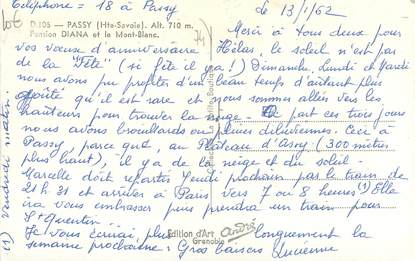 Téléphone = 18 à Passy
le 13/1/62
D.105 - PASSY (Hte-Savoie). Alt. 710 m.
Pension DIANA et le Mont-Blanc.
74
Merci à tous deux pour
vos vœux d'anniversaire Hélas, le soleil n'est pas
de la "Fête" (si fête il y a!) Dimanche, lundi et Mardi
nous avons pu profiter d'un beau temps d'autant plus
goûté qu'il est rare et nous sommes allées vers les
hauteurs pour trouver la neige. à part ces trois jours
nous avons brouillards ou pluies diluviennes. Ceci à
Passy, parce que, au Plateau d'Assy (300 mètres
plus haut), il y a de la neige et du soleil.
Marcelle doit repartir Jeudi prochain par le train de
21 h 31 et arrivera à Paris vers 7 ou 8 heures (1) Elle
ira vous embrasser puis prendra un train pour
St Quentin.
Je vous écrirai plus longuement la
semaine prochaine. Gros baisers Lucienne
(1) Vendredi matin.
Edition d'Art
André
Grenoble